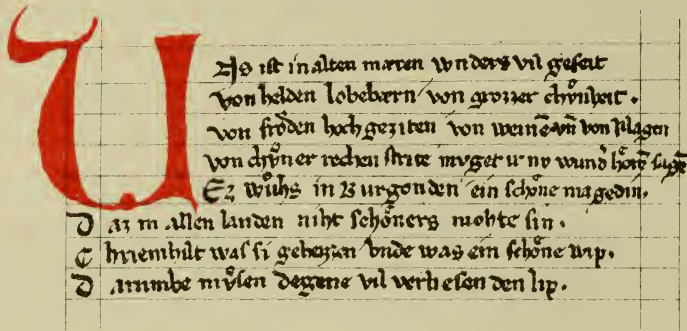 UNS ist in alten mæren wnders vil geseit
von helden lobebærn von grozzer chvͦnheit .
von froͤden hochgeziten von weinē vn̄ von klagen
von chvͦner rechen strite mvget ir nv wund' hoͤrē sagē
Ez wvͦhs in Burgonden ein schoͤne magedin.
Daz in allen landen niht schoͤners mohte sin .
Chriemhilt was si geheizzen vnde was ein schoͤne wip.
Darumbe mvͦsen degene vil verliesen den lip.